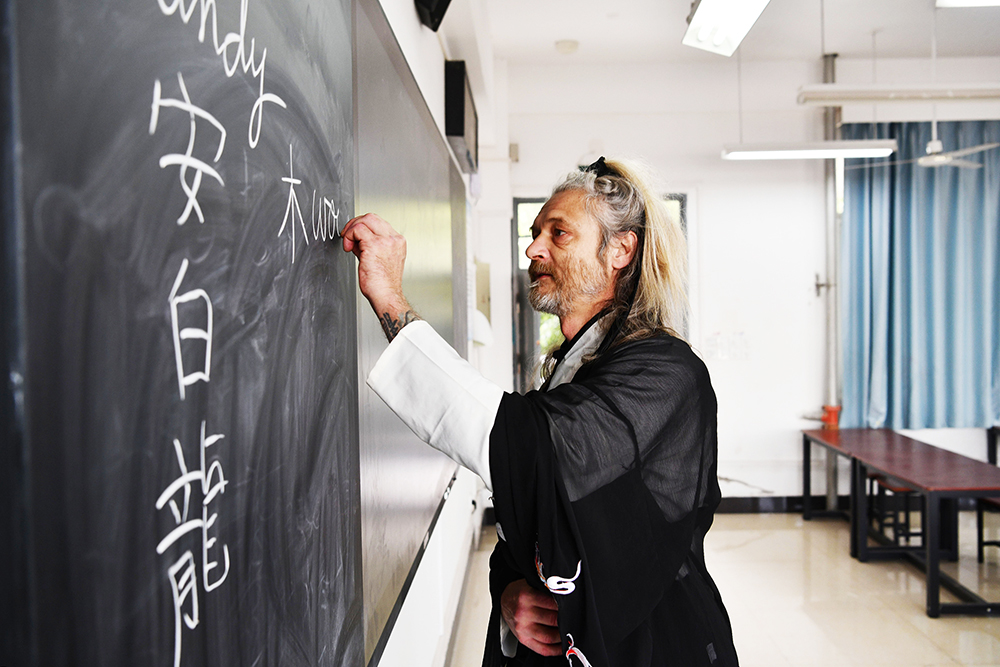 andy
安白龍
木 woo